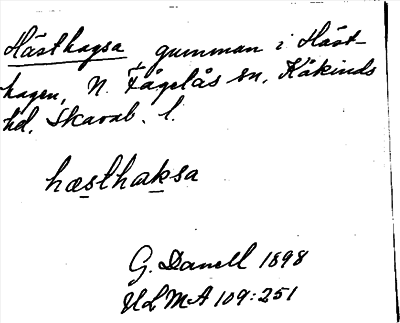 Hästhagsa gumman i Häst-
hagen, N. Fågelås sn, Kåkinds
hd, Skarab. l.
hæsthaksa
G. Danell 1898
ULMA 109:251